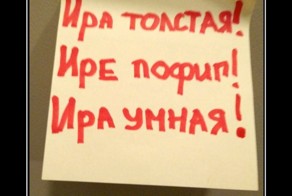 Ира толстая!
Ире пофиг!
Ира умная!